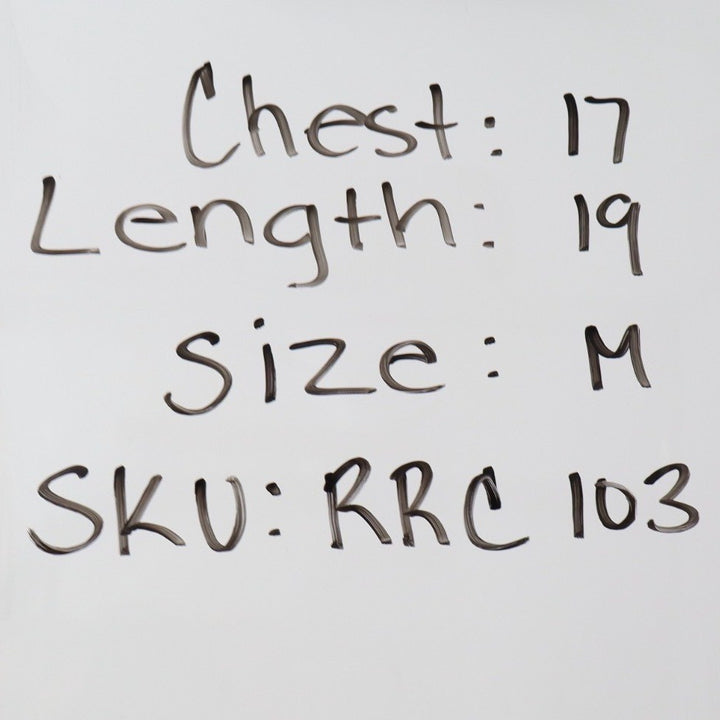 Chest: 17
Length: 19
Size: M
SKU: RRC 103